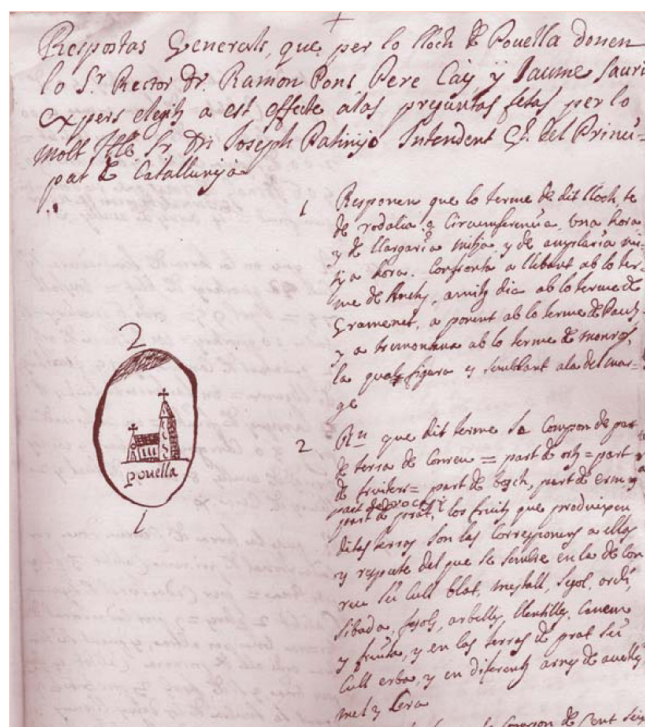 Respostas Generals, que per lo lloch de Povella donen
lo Sr. Rector Dr. Ramon Pons Pere Cay y Jaume Sauri
expers elegits a est effecte a las preguntas fetas per lo
molt Itte Sr. Dn Joseph Patinyo Intendent Gl. del Princi=
pat de Catallunya
1 Responen que lo terme de dit lloch, te
de rodalia, o Circumferencia, una hora
y de llargaria mitja y de amplaria mi-
tja hora. Confronta a llevant ab lo ter-
me de a mitg dia ab lo terme de
Gramenet, a ponent ab lo terme de
y a tremontana ab lo terme de monros,
la qual figura es semblant a la del mar-
ge
2
povella
1
2 Rn que dit terme se Compon de part
de terra de Conreu = part de ort = part
de fruiters = part de bosch, part de erm y
part de rocas
part de prat, los fruits que produixen
ditas terras son las corresponens a ellas
y respecte del que se sembre en la de con
reu se cull blat, mestall, segol, ordi,
sibada, fesols, arbells, llentilles, canem
y fruita, y en las terras de prat se
cull erba, y en diferents anys de avells
mel y sera